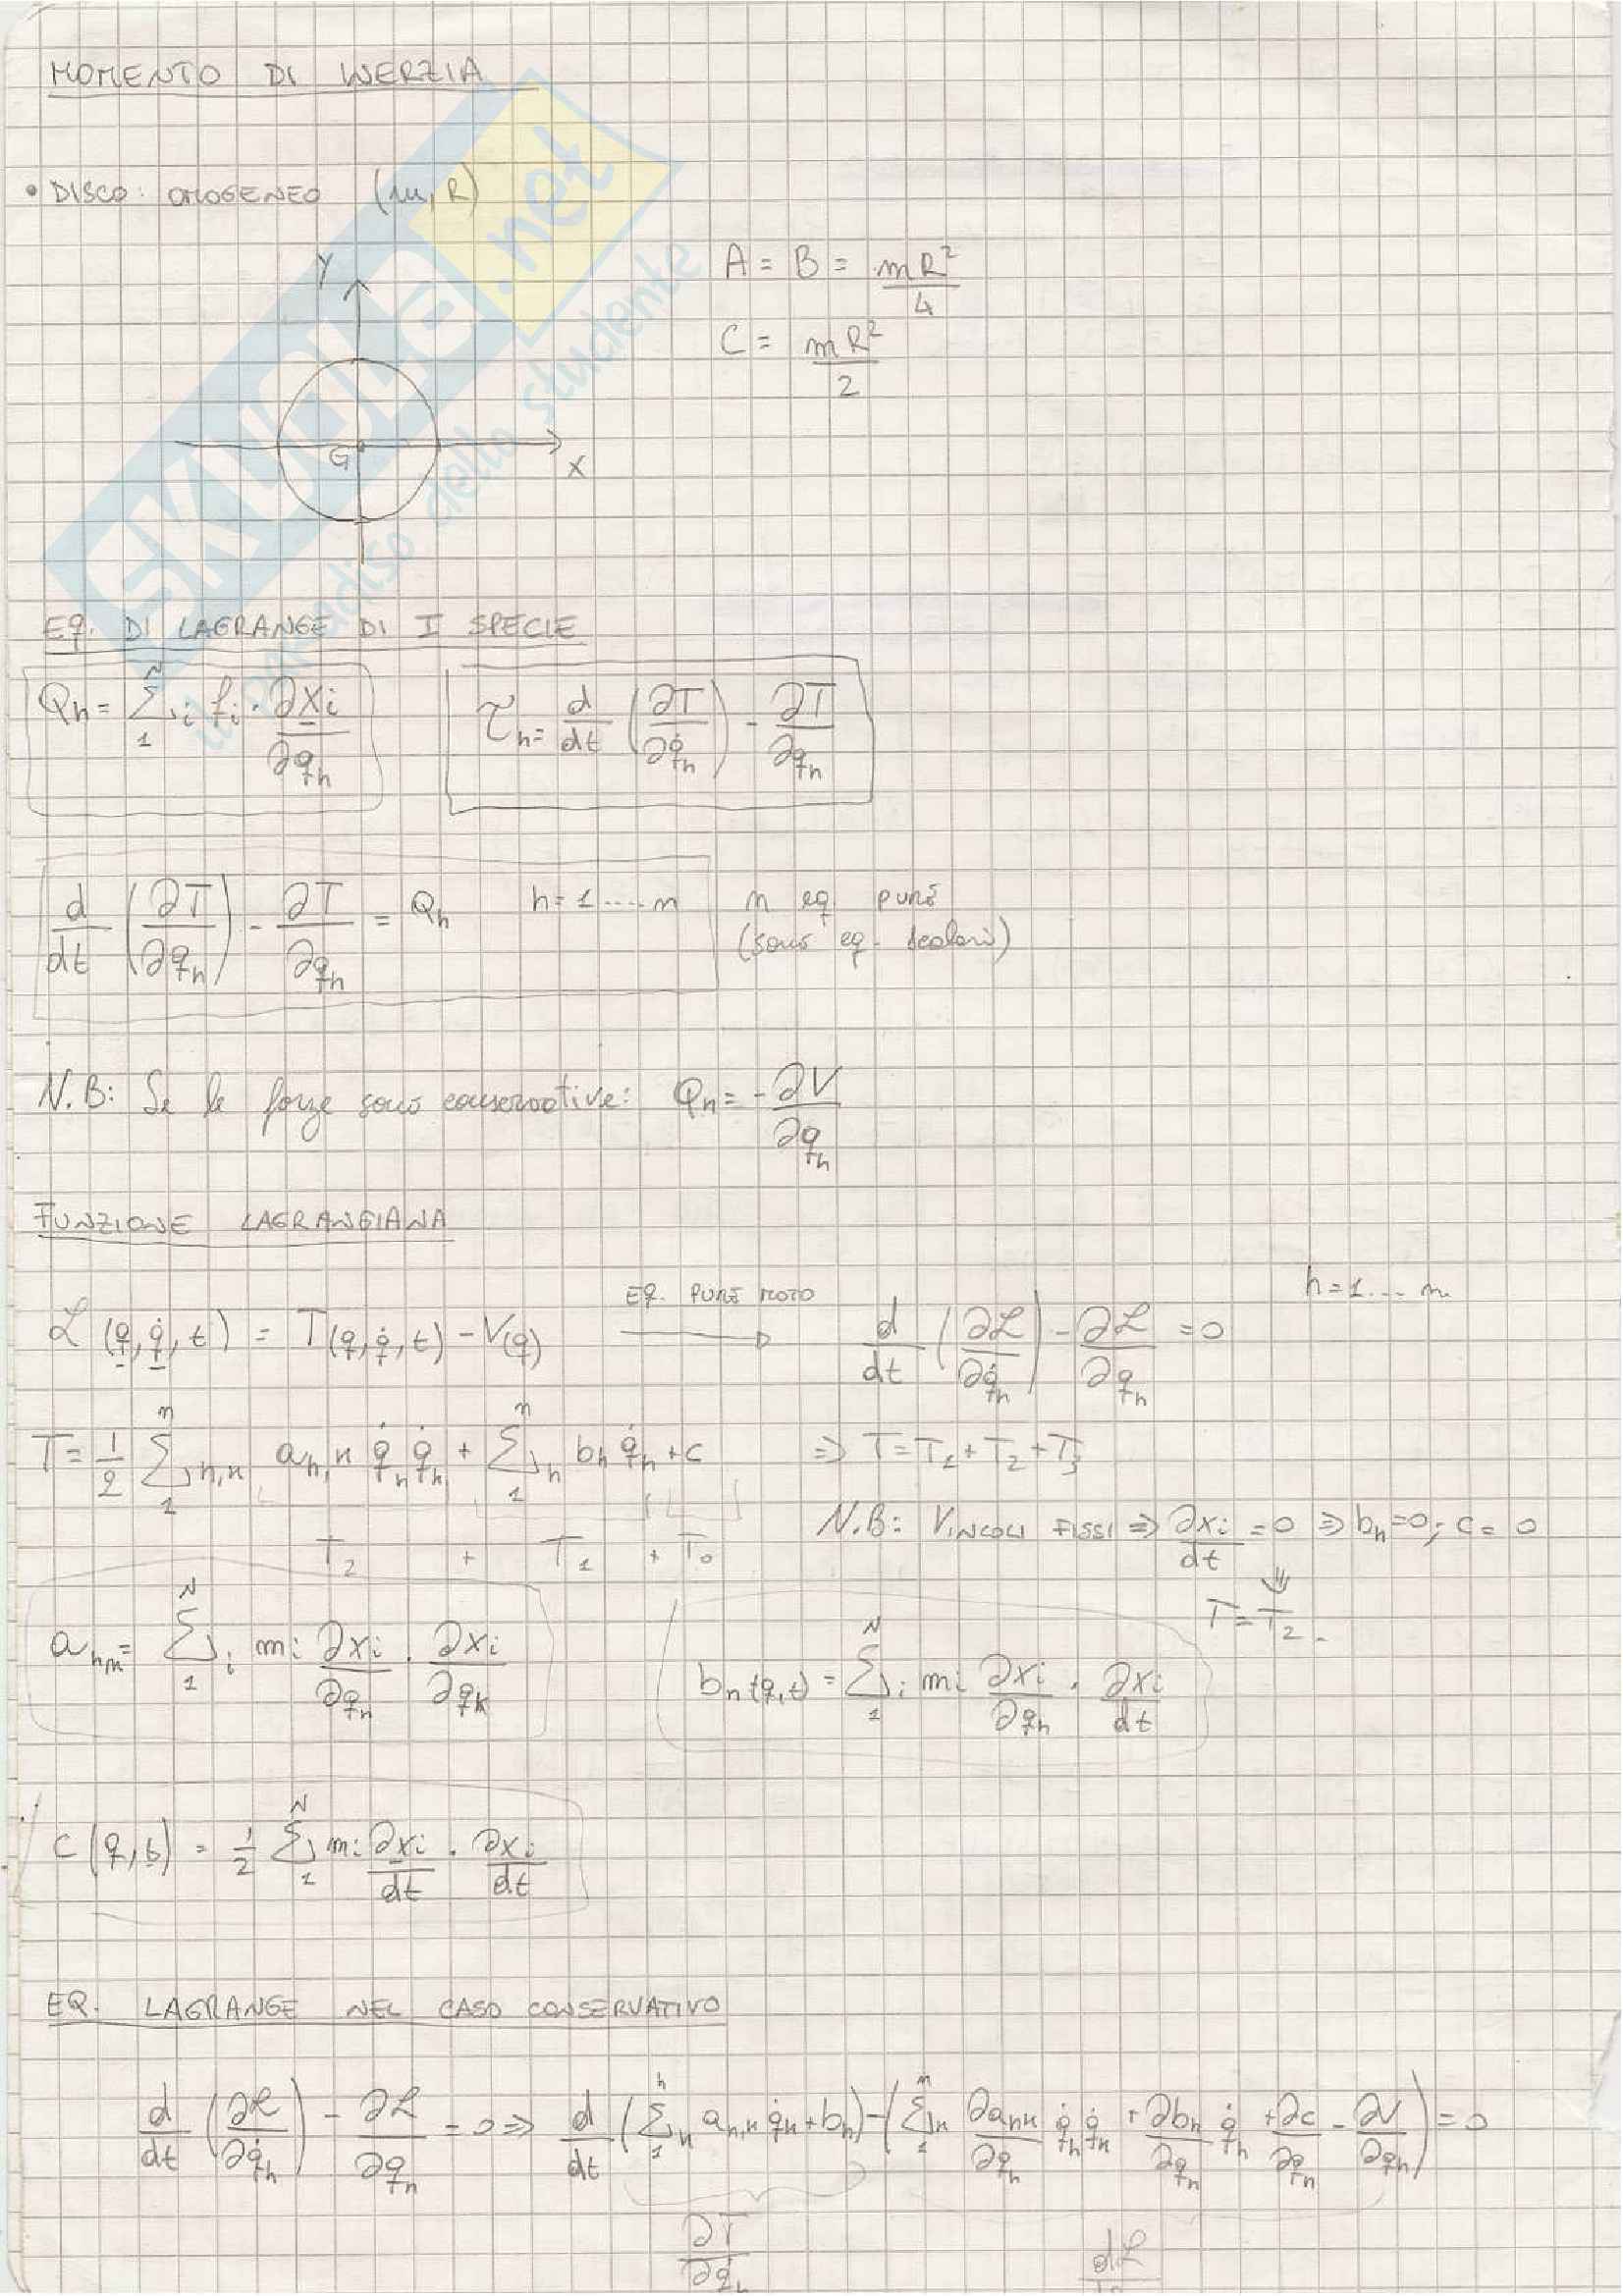 MOMENTO DI INERZIA
• DISCO: OMOGENEO (m, R)
Y
A = B = mR²/4
C = mR²/2
G
X
EQ. DI LAGRANGE DI I SPECIE
Qh = Σ₁ᴺ i fi · ∂xi/∂qh
τh = d/dt (∂T/∂q̇h) - ∂T/∂qh
d/dt (∂T/∂q̇h) - ∂T/∂qh = Qh h = 1 ..... n
n eq pure
(sono eq. scalari)
N.B: Se le forze sono conservative: Qh = - ∂V/∂qh
FUNZIONE LAGRANGIANA
ℒ (q, q̇, t) = T(q, q̇, t) - V(q)
EQ. PURE MOTO
d/dt (∂ℒ/∂q̇h) - ∂ℒ/∂qh = 0
h = 1 .... n
T = 1/2 Σ₁ⁿ h,k ah,k q̇h q̇k + Σ₁ⁿ h bh q̇h + c
⇒ T = T1 + T2 + T3
T2 + T1 + T0
N.B: VINCOLI FISSI ⇒ ∂xi/dt = 0 ⇒ bh = 0; c = 0
⇓
T = T2.
ahk = Σ₁ᴺ i mi ∂xi/∂qh · ∂xi/∂qk
bh(q,t) = Σ₁ᴺ i mi ∂xi/∂qh · ∂xi/dt
c (q, t) = 1/2 Σ₁ᴺ mi ∂xi/dt · ∂xi/dt
EQ. LAGRANGE NEL CASO CONSERVATIVO
d/dt (∂ℒ/∂q̇h) - ∂ℒ/∂qh = 0 ⇒ d/dt (Σ₁ⁿ k ah,k q̇k + bh) - (Σ₁ⁿ k ∂ahk/∂qh q̇h q̇k + ∂bh/∂qh q̇h + ∂c/∂qh - ∂V/∂qh) = 0
∂T/∂q̇h
dℒ
SKUOLA.net
il paradiso dello studente